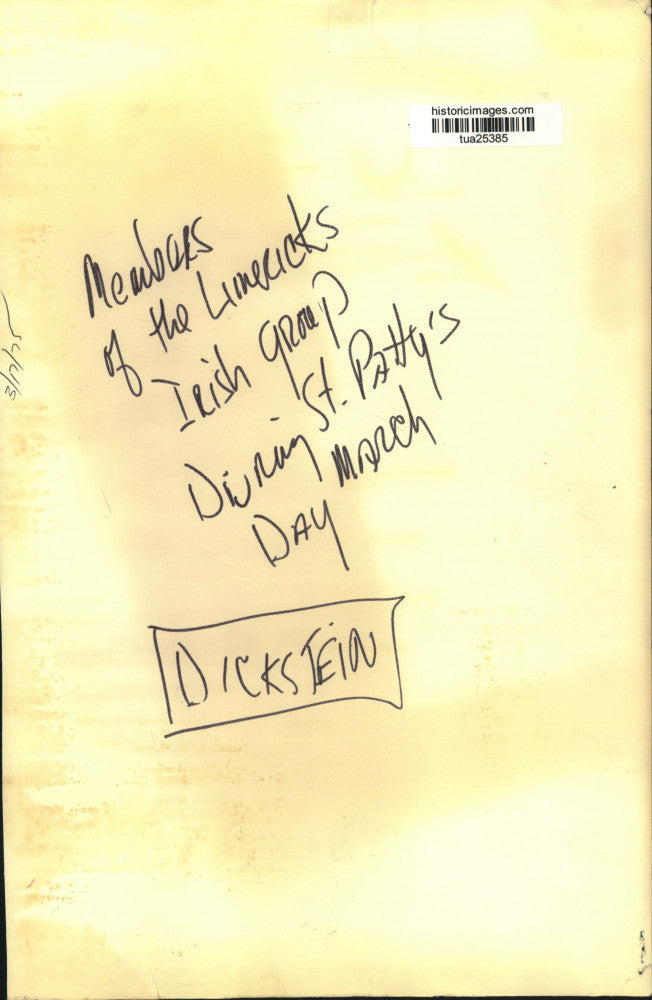 historicimages.com
tua25385
Members
of the Limericks
Irish Group
During St. Patty's
Day March
DICKSTEIN
3/17/75